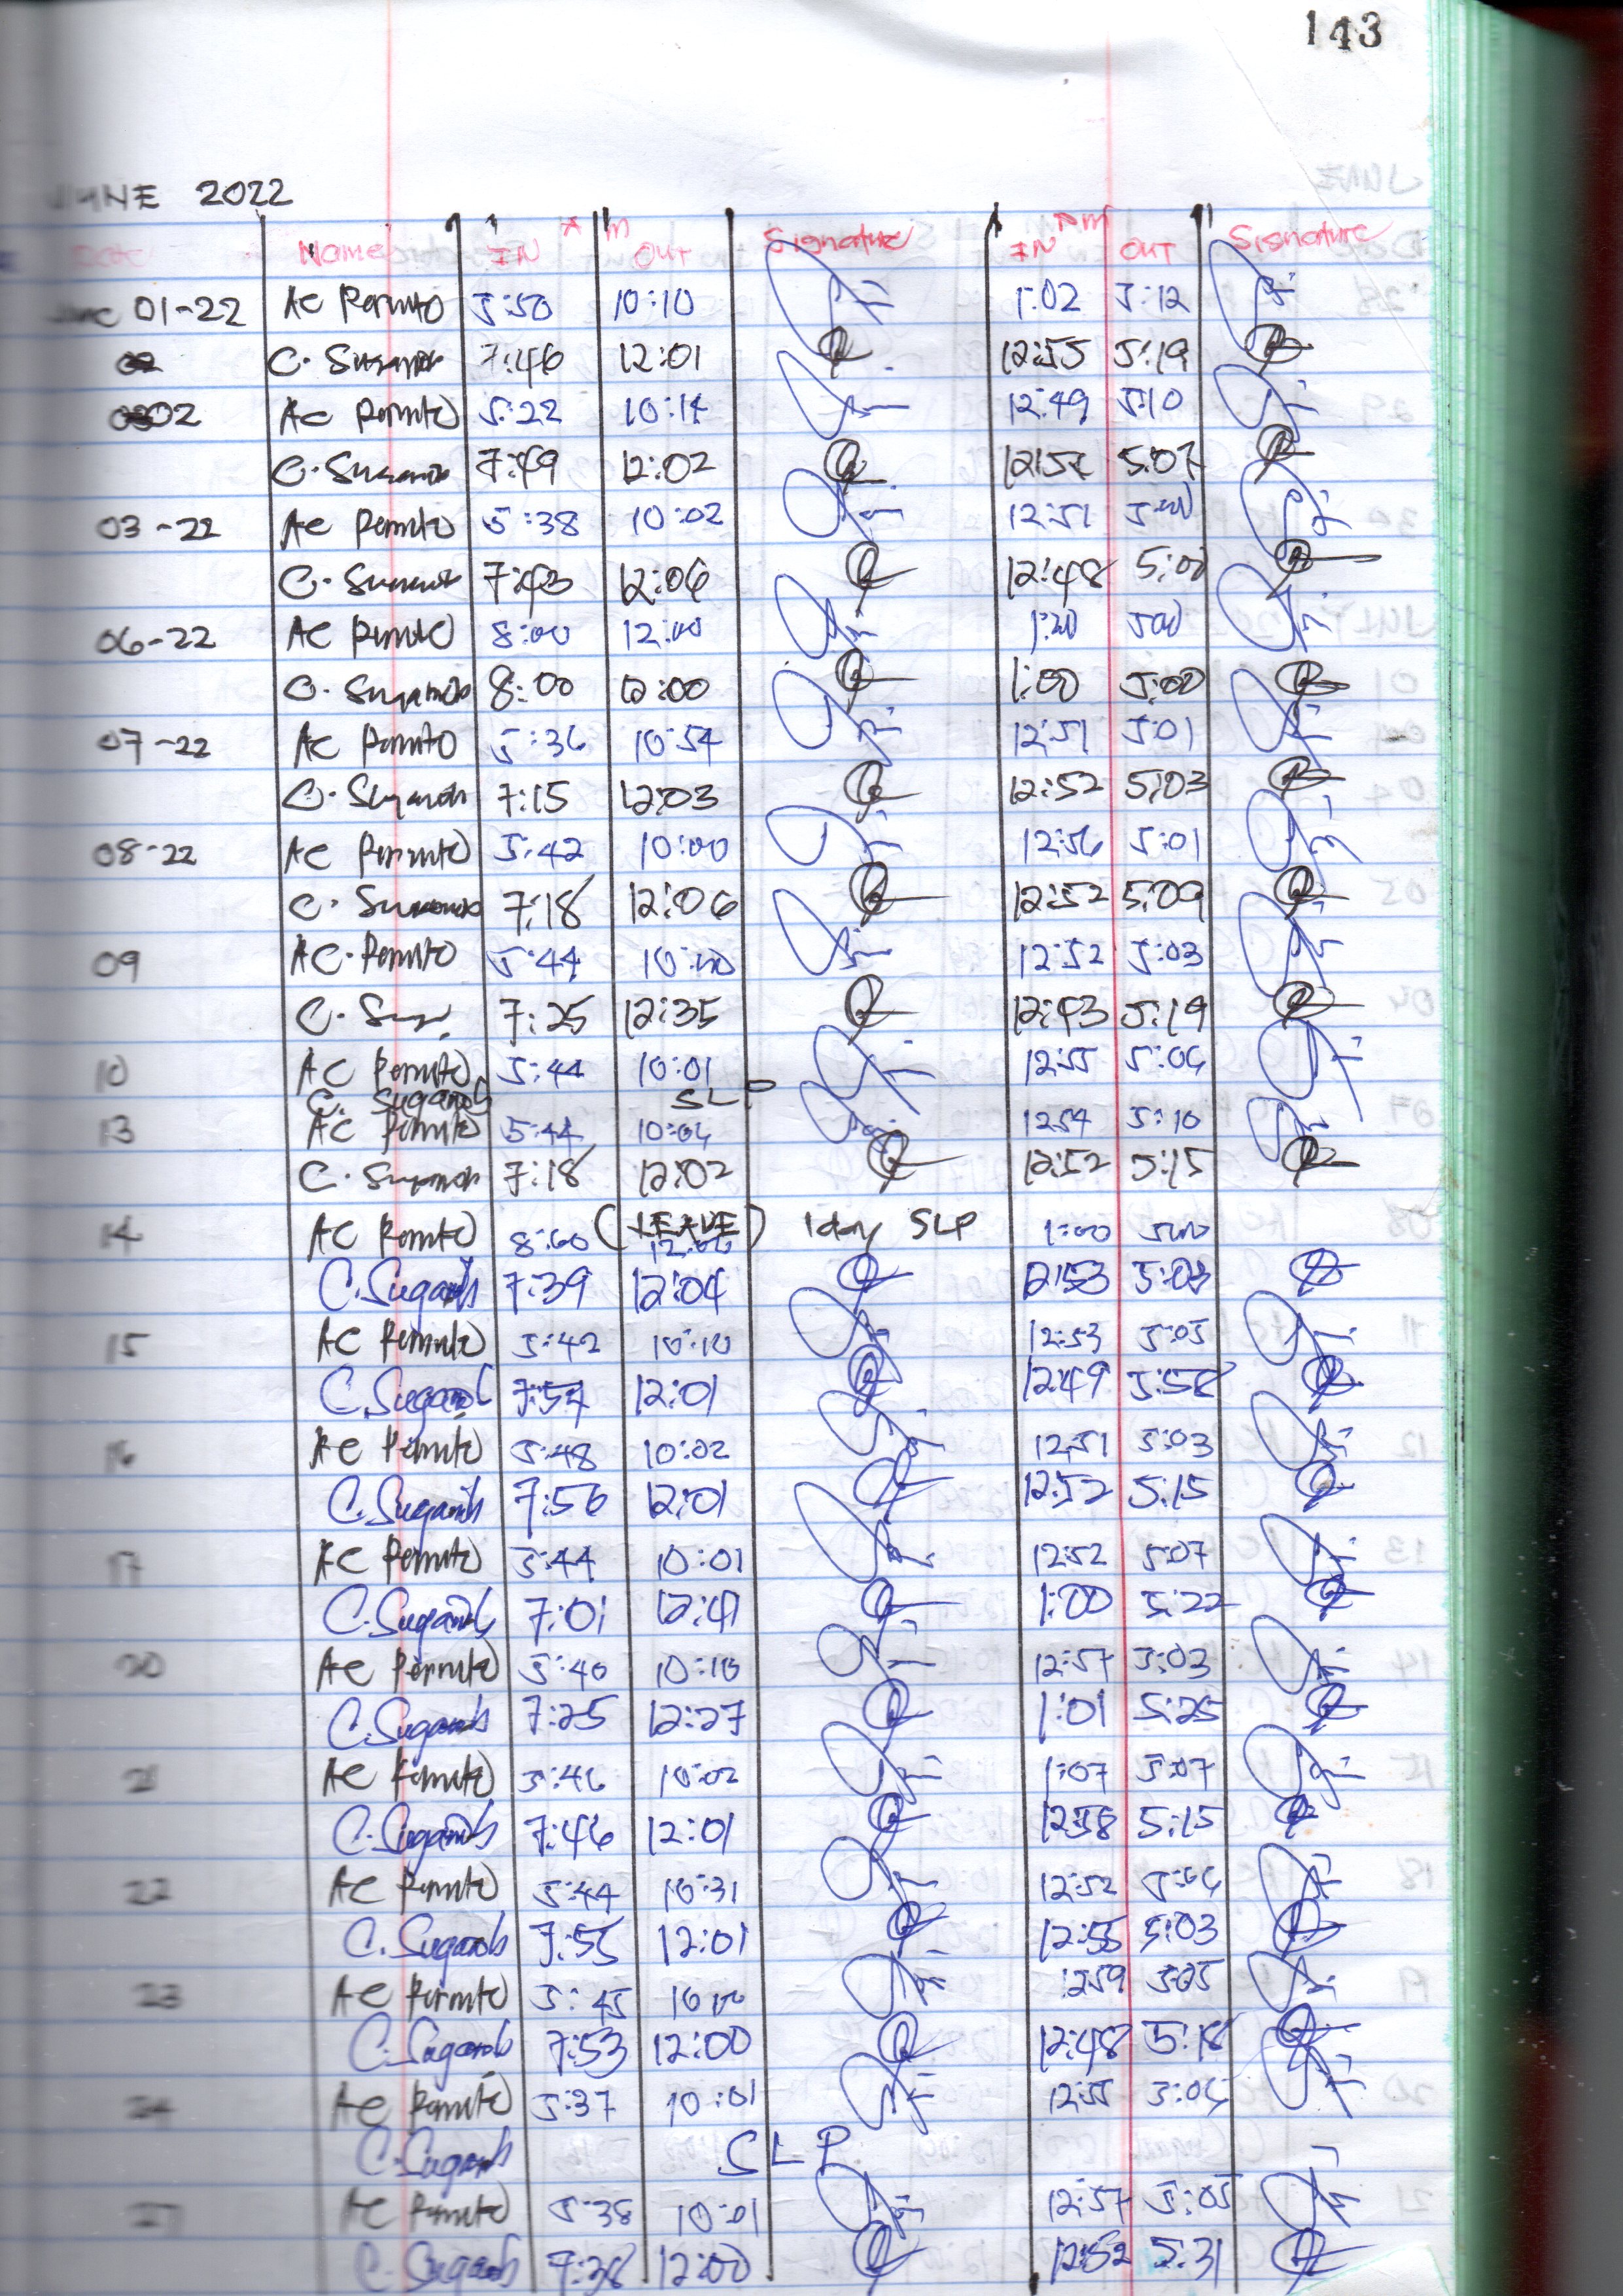 143
JUNE 2022
AM PM
Date Name IN OUT Signature IN OUT Signature
June 01-22 AC Permito 5:50 10:10 1:02 5:12
C. Suganob 7:46 12:01 12:55 5:19
02 AC Permito 5:22 10:14 12:49 5:10
C. Suganob 7:49 12:02 12:57 5:07
03-22 AC Permito 5:38 10:02 12:51 5:00
C. Suganob 7:43 12:06 12:48 5:00
06-22 AC Permito 8:00 12:00 1:00 5:00
C. Suganob 8:00 12:00 1:00 5:00
07-22 AC Permito 5:36 10:54 12:51 5:01
C. Suganob 7:15 12:03 12:52 5:03
08-22 AC Permito 5:42 10:00 12:56 5:01
C. Suganob 7:18 12:06 12:52 5:09
09 AC Permito 5:44 10:00 12:52 5:03
C. Sug. 7:25 12:35 12:43 5:19
10 AC Permito 5:44 10:01 12:55 5:06
C. Suganob SLP
13 AC Permito 5:44 10:04 12:54 5:10
C. Suganob 7:18 12:02 12:52 5:15
14 AC Permito 8:00 (LEAVE) 12:00 1day SLP 1:00 5:00
C. Suganob 7:39 12:04 12:53 5:03
15 AC Permito 5:42 10:10 12:53 5:05
C. Suganob 7:57 12:01 12:49 5:58
16 AC Permito 5:48 10:02 12:51 5:03
C. Suganob 7:56 12:01 12:52 5:15
17 AC Permito 5:44 10:01 12:52 5:07
C. Suganob 7:01 12:41 1:00 5:22
20 AC Permito 5:40 10:10 12:57 5:03
C. Suganob 7:25 12:27 1:01 5:25
21 AC Permito 5:46 10:02 1:07 5:07
C. Suganob 7:46 12:01 12:58 5:15
22 AC Permito 5:44 10:31 12:52 5:06
C. Suganob 7:55 12:01 12:55 5:03
23 AC Permito 5:45 10:00 12:59 5:05
C. Suganob 7:53 12:00 12:48 5:18
24 AC Permito 5:37 10:01 12:55 5:06
C. Suganob SLP
27 AC Permito 5:38 10:01 12:57 5:05
C. Suganob 7:38 12:00 12:52 5:31